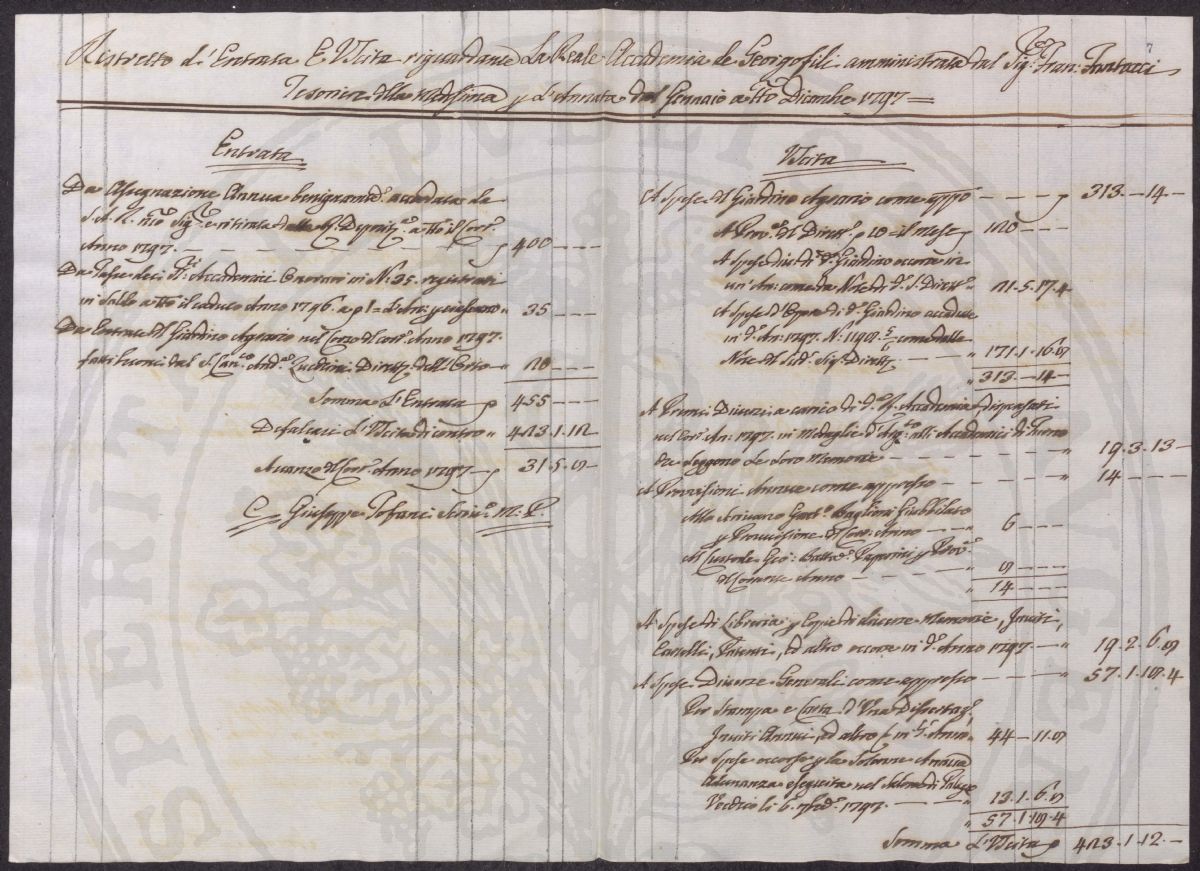 Ristretto d'Entrata E Uscita riguardante La Reale Accademia de Georgofili amministrata dal Sig.re Fran.
Tesoriere della medesima p L'Annata dal Gennaio a tto Dicembre 1797
Entrata
Da Assegnazione Annua benignamte accordata da
S. A. R. nro Sigre e ritirata dalla a tto il
Anno 1797. p 400
Da Tasse deci Accademici Onorari in No 35. registrati
in Saldo a tto il caduto Anno 1796. a p 1 " 35
Da Entrate del Giardino Agrario nel Corso del corr. Anno 1797.
fatti buoni dal S. Canco Andra Zucchini Dirett. dell'Orto " 20
Somma L'Entrata p 455
Defalcasi L'Uscita di contro " 423.1.12
Avanzo del corr. Anno 1797 p 31.5.8
Giuseppe Tofani Scrivo M. P.
Uscita
A Spese del Giardino Agrario come appo p 313. 14
A del Dirett. p 10 il mese p 120
A Spese di do Giardino occorse in
un An: come da Note di do S. Dirett. " 21.5.17.4
A Spese d'Opre di do Giardino accadute
in do An: 1797. No come dalle
Note del Sud. Sig. Dirett. " 171.1.16.8
" 313 14
A Premi Diversi a carico di da R. Accademia dispensati
nel corr. An: 1797. in Medaglie d'Argto alli Accademici di Turno
che Leggono Le Loro Memorie " 19.3.13
A Provvisioni Annue come appresso " 14
Allo Scrivano Gaeto Baglioni Giubbilato
p Provvisione del Corr. Anno " 6
Al Custode Gio: Batta Paperini p
del Corrente Anno " 8
" 14
A Spese di Libreria p Copie di diverse Memorie, Inviti,
Cartelli, Patenti, ed altro occorse in do Anno 1797 " 19.2.6.8
A Spese Diverse Generali come appresso " 57.1.18.4
Per Stampa e Carta d'Una Dissertaz.
Inviti Annui, ed altro in do Anno " 44 11.8
Per Spese occorse p la Solenne Annua
Adunanza eseguita nel Salone di Palazo
Vecchio li 6. 1797. " 13.1.6.8
" 57.1.18.4
Somma L'Uscita p 423.1.12